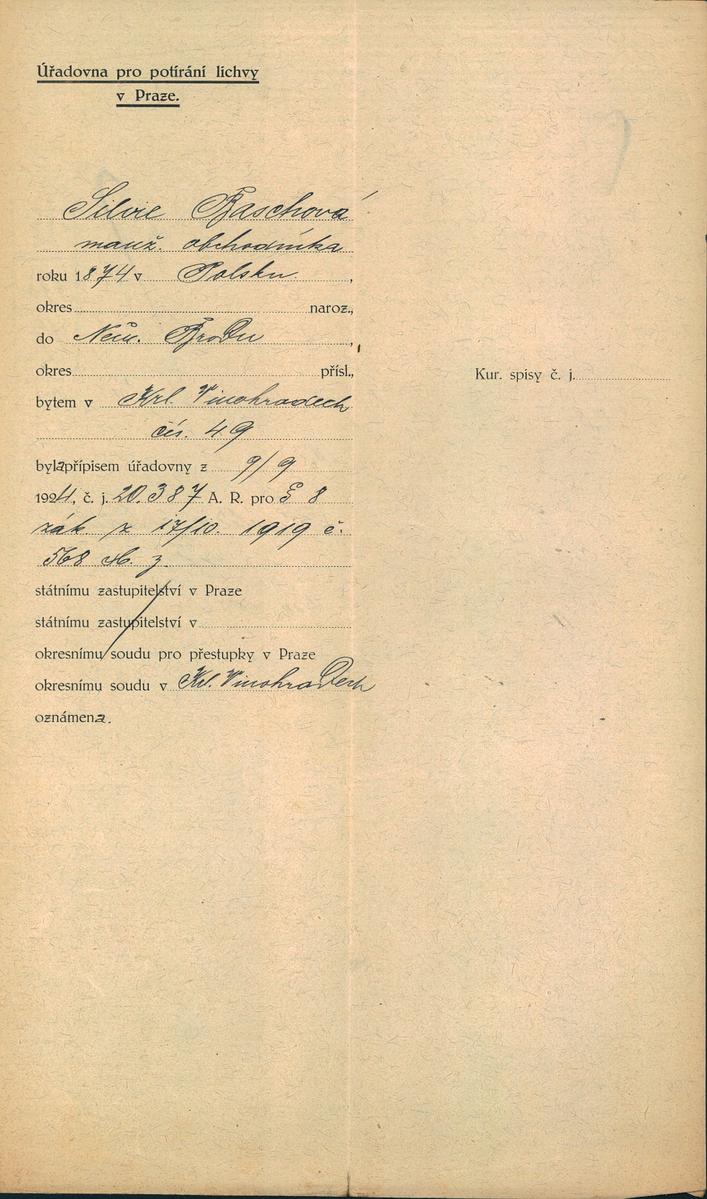 Úřadovna pro potírání lichvy
v Praze.
Silvie Baschová
manž. obchodníka
roku 1874 v Polsku,
okres naroz.,
do Něm. Brodu,
okres přísl.,
Kur. spisy č. j.
bytem v Krl. Vinohradech
čís. 49
byla přípisem úřadovny z 9/9
1924, č. j. 20.387 A. R. pro § 8
zák. z 17/10. 1919 č.
568 sb. z.
státnímu zastupitelství v Praze
státnímu zastupitelství v
okresnímu soudu pro přestupky v Praze
okresnímu soudu v Krl. Vinohradech
oznámena.